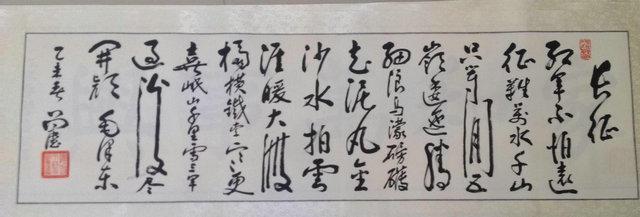 长征
红军不怕遠
征難萬水千山
只等闲五
嶺逶迤腾
细浪乌蒙磅礴
走泥丸金
沙水拍雲
崖暖大渡
橋横鐵索寒更
喜岷山千里雪三军
过後尽
开颜 毛泽东
乙未春